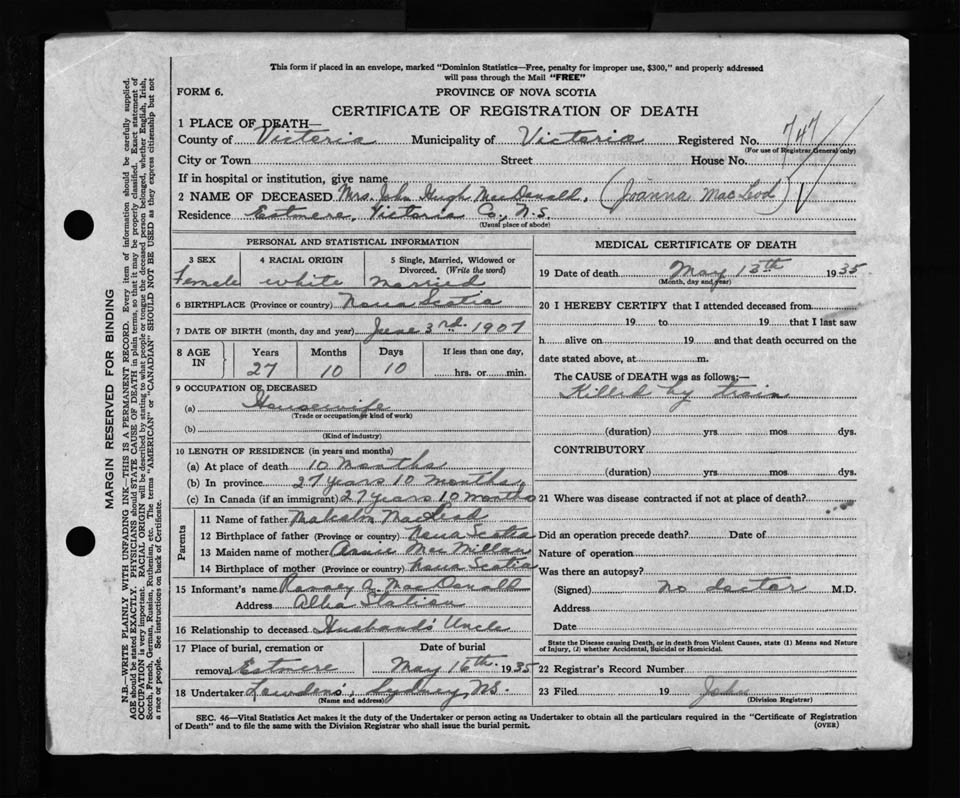 This form if placed in an envelope, marked "Dominion Statistics—Free, penalty for improper use, $300," and properly addressed
will pass through the Mail "FREE"
FORM 6.
PROVINCE OF NOVA SCOTIA
CERTIFICATE OF REGISTRATION OF DEATH
1 PLACE OF DEATH—
County of Victoria Municipality of Victoria Registered No. 747
(For use of Registrar General only)
City or Town Street House No.
If in hospital or institution, give name
2 NAME OF DECEASED Mrs. John Hugh MacDonald, (Joanna MacLeod)
Residence Estmere, Victoria Co., N.S.
(Usual place of abode)
PERSONAL AND STATISTICAL INFORMATION
3 SEX 4 RACIAL ORIGIN 5 Single, Married, Widowed or
Divorced. (Write the word)
Female white Married
6 BIRTHPLACE (Province or country) Nova Scotia
7 DATE OF BIRTH (month, day and year) June 3rd. 1907
8 AGE IN Years Months Days If less than one day,
27 10 10 hrs. or min.
9 OCCUPATION OF DECEASED
(a) Housewife
(Trade or occupation or kind of work)
(b)
(Kind of industry)
10 LENGTH OF RESIDENCE (in years and months)
(a) At place of death 10 Months
(b) In province 27 years 10 months
(c) In Canada (if an immigrant) 27 years 10 months
Parents
11 Name of father Malcolm MacLeod
12 Birthplace of father (Province or country) Nova Scotia
13 Maiden name of mother Annie MacMillan
14 Birthplace of mother (Province or country) Nova Scotia
15 Informant's name A. MacDonald
Address Alba Station
16 Relationship to deceased Husband's Uncle
17 Place of burial, cremation or Date of burial
removal Estmere May 16th. 1935
18 Undertaker Sydney, NS.
(Name and address)
MEDICAL CERTIFICATE OF DEATH
19 Date of death May 13th 1935
(Month, day and year)
20 I HEREBY CERTIFY that I attended deceased from
19 to 19 that I last saw
h alive on 19 and that death occurred on the
date stated above, at m.
The CAUSE of DEATH was as follows:—
Killed by train
(duration) yrs mos dys.
CONTRIBUTORY
(duration) yrs mos dys.
21 Where was disease contracted if not at place of death?
Did an operation precede death? Date of
Nature of operation
Was there an autopsy?
(Signed) No doctor M.D.
Address
Date
State the Disease causing Death, or in death from Violent Causes, state (1) Means and Nature
of Injury, (2) whether Accidental, Suicidal or Homicidal.
22 Registrar's Record Number
23 Filed 19 John
(Division Registrar)
SEC. 46—Vital Statistics Act makes it the duty of the Undertaker or person acting as Undertaker to obtain all the particulars required in the "Certificate of Registration
of Death" and to file the same with the Division Registrar who shall issue the burial permit.
(OVER)
MARGIN RESERVED FOR BINDING
N.B.—WRITE PLAINLY WITH UNFADING INK—THIS IS A PERMANENT RECORD. Every item of information should be carefully supplied.
AGE should be stated EXACTLY. PHYSICIANS should STATE CAUSE OF DEATH in plain terms, so that it may be properly classified. Exact statement of
OCCUPATION is very important. RACIAL ORIGIN will be described by stating to what people or tongue the deceased person belonged, whether English, Irish,
Scotch, French, German, Russian, Ruthenian, etc. The terms "AMERICAN" or "CANADIAN" SHOULD NOT BE USED as they express citizenship but not
a race or people. See instructions on back of Certificate.